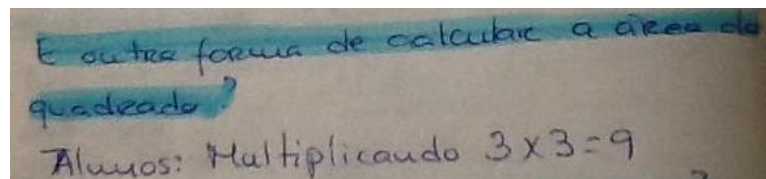 E outra forma de calcular a área do
quadrado?
Alunos: Multiplicando 3x3=9